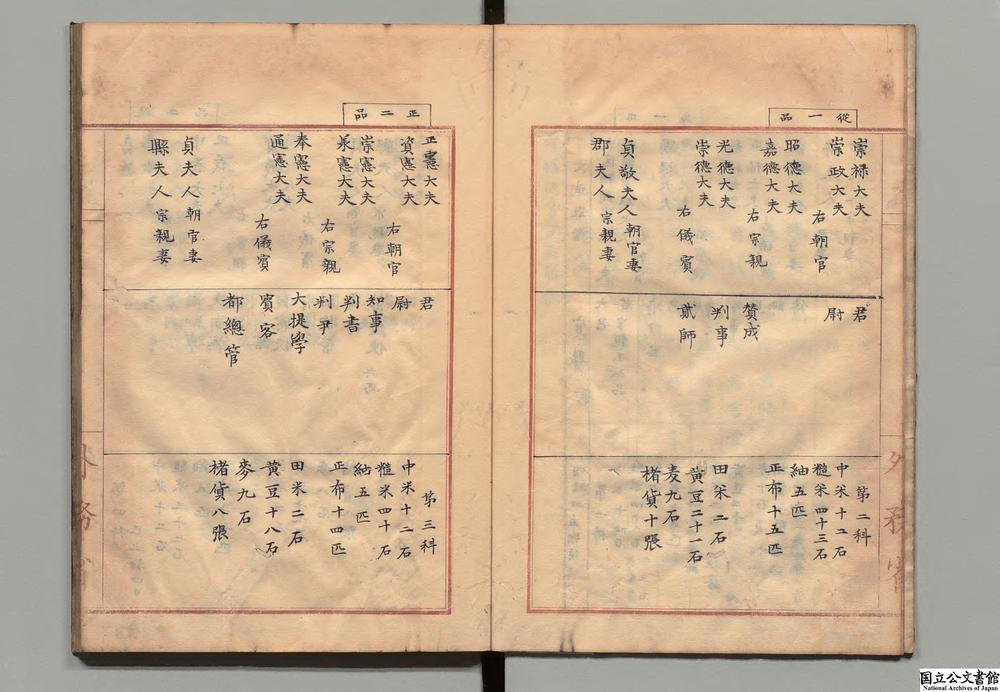 從一品
崇禄大夫
崇政大夫
右朝官
昭德大夫
嘉德大夫
右宗親
光德大夫
崇德大夫
右儀賓
貞敬夫人朝官妻
郡夫人宗親妻
君
尉
賛成
判事
貳師
第二科
中米十二石
糙米四十三石
紬五匹
正布十五匹
田米二石
黄豆二十一石
麦九石
楮貨十張
正二品
正憲大夫
資憲大夫
右朝官
崇憲大夫
承憲大夫
右宗親
奉憲大夫
通憲大夫
右儀賓
貞夫人朝官妻
縣夫人宗親妻
君
尉
知事
判書
判尹
大提學
賓客
都總管
第三科
中米十二石
糙米四十石
紬五匹
正布十四匹
田米二石
黄豆十八石
麥九石
楮貨八張
外務省
外務省
国立公文書館
National Archives of Japan